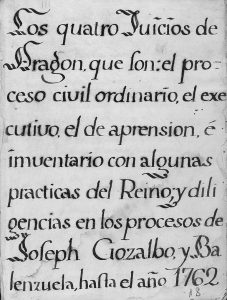 Los quatro Juicios de
Aragon, que son: el pro-
ceso civil ordinario, el exe
cutivo, el de aprension, é
imventario con algunas
practicas del Reino, y dili
gencias en los procesos de
Joseph Ciozalbo, y Ba
lenzuela, hasta el año 1762